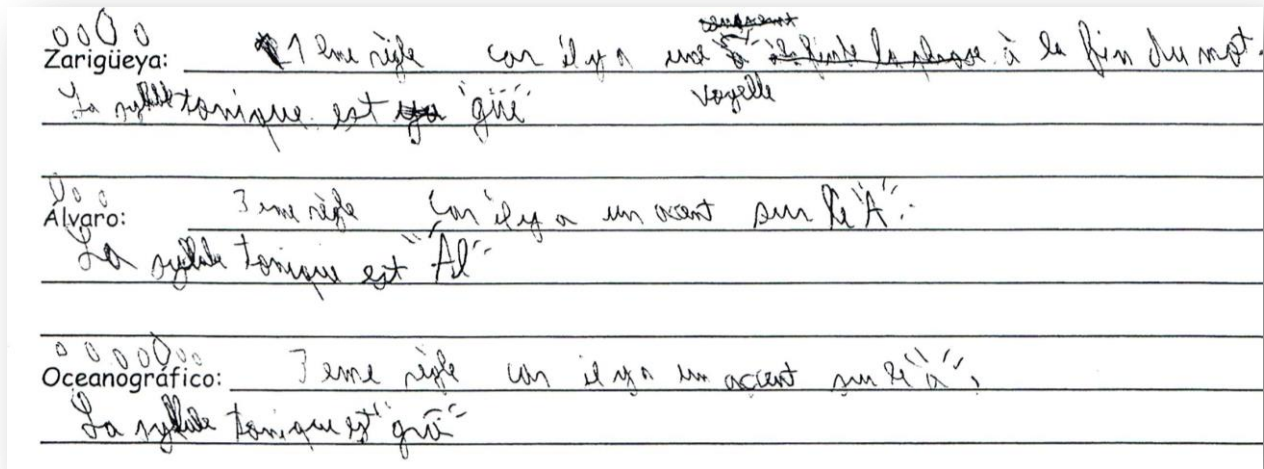 Zarigüeya: 1 ème règle car il y a une voyelle à la fin du mot.
La syllabe tonique est "güe"
Álvaro: 3 eme règle car il y a un accent sur le "A".
La syllabe tonique est "Ál"
Oceanográfico: 3 eme règle car il y a un accent sur le "a".
La syllabe tonique est "grá"